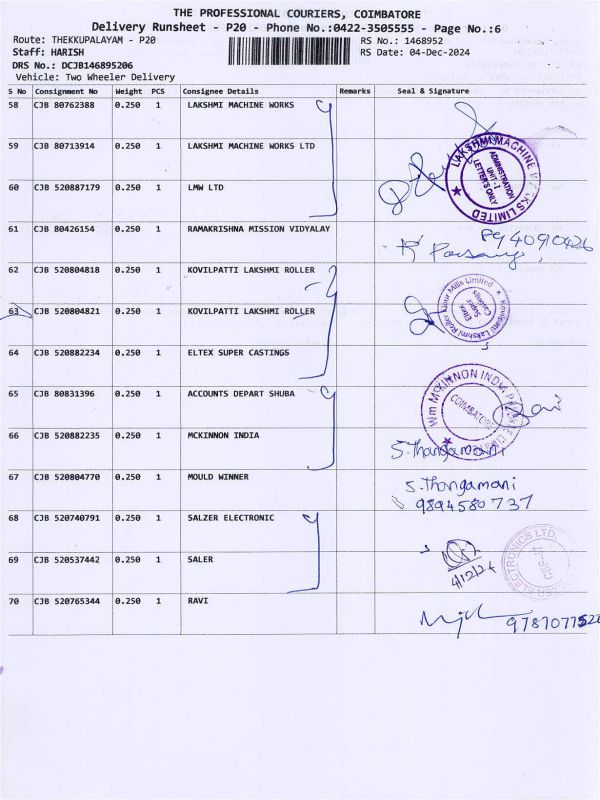 THE PROFESSIONAL COURIERS, COIMBATORE
Delivery Runsheet - P20 - Phone No.:0422-3505555 - Page No.:6
Route: THEKKUPALAYAM - P20 RS No.: 1468952
Staff: HARISH RS Date: 04-Dec-2024
DRS No.: DCJB146895206
Vehicle: Two Wheeler Delivery
S No Consignment No Weight PCS Consignee Details Remarks Seal & Signature
58 CJB 80762388 0.250 1 LAKSHMI MACHINE WORKS
59 CJB 80713914 0.250 1 LAKSHMI MACHINE WORKS LTD
LAKSHMI MACHINE WORKS LIMITED
ADMINISTRATION
UNIT-I
LETTERS ONLY
60 CJB 520887179 0.250 1 LMW LTD
61 CJB 80426154 0.250 1 RAMAKRISHNA MISSION VIDYALAY
8940910426
62 CJB 520804818 0.250 1 KOVILPATTI LAKSHMI ROLLER
Kovilpatti Lakshmi Roller Flour Mills Limited
Eltex
Super
Castings
63 CJB 520804821 0.250 1 KOVILPATTI LAKSHMI ROLLER
64 CJB 520882234 0.250 1 ELTEX SUPER CASTINGS
65 CJB 80831396 0.250 1 ACCOUNTS DEPART SHUBA
Wm MCKINNON INDIA PRIVATE LIMITED
COIMBATORE
66 CJB 520882235 0.250 1 MCKINNON INDIA
S.Thangamani
67 CJB 520804770 0.250 1 MOULD WINNER
S.Thangamani
9894580737
68 CJB 520740791 0.250 1 SALZER ELECTRONIC
4/12/24
ELECTRONICS LTD.
69 CJB 520537442 0.250 1 SALER
70 CJB 520765344 0.250 1 RAVI